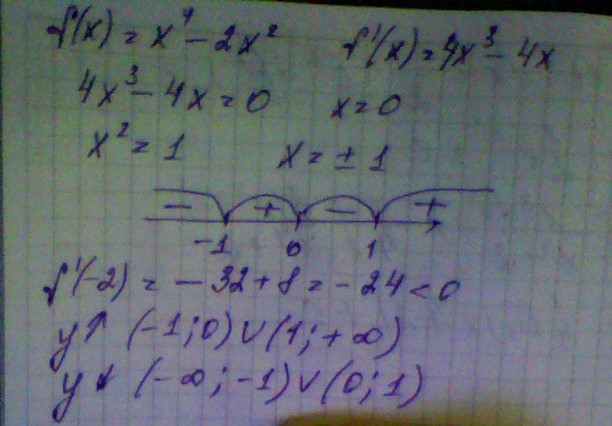 f(x) = x⁴ - 2x² f'(x) = 4x³ - 4x
4x³ - 4x = 0 x = 0
x² = 1 x = ± 1
- + - +
-1 0 1
f'(-2) = - 32 + 8 = - 24 < 0
y↑ (-1; 0) ∪ (1; + ∞)
y↓ (-∞; -1) ∪ (0; 1)